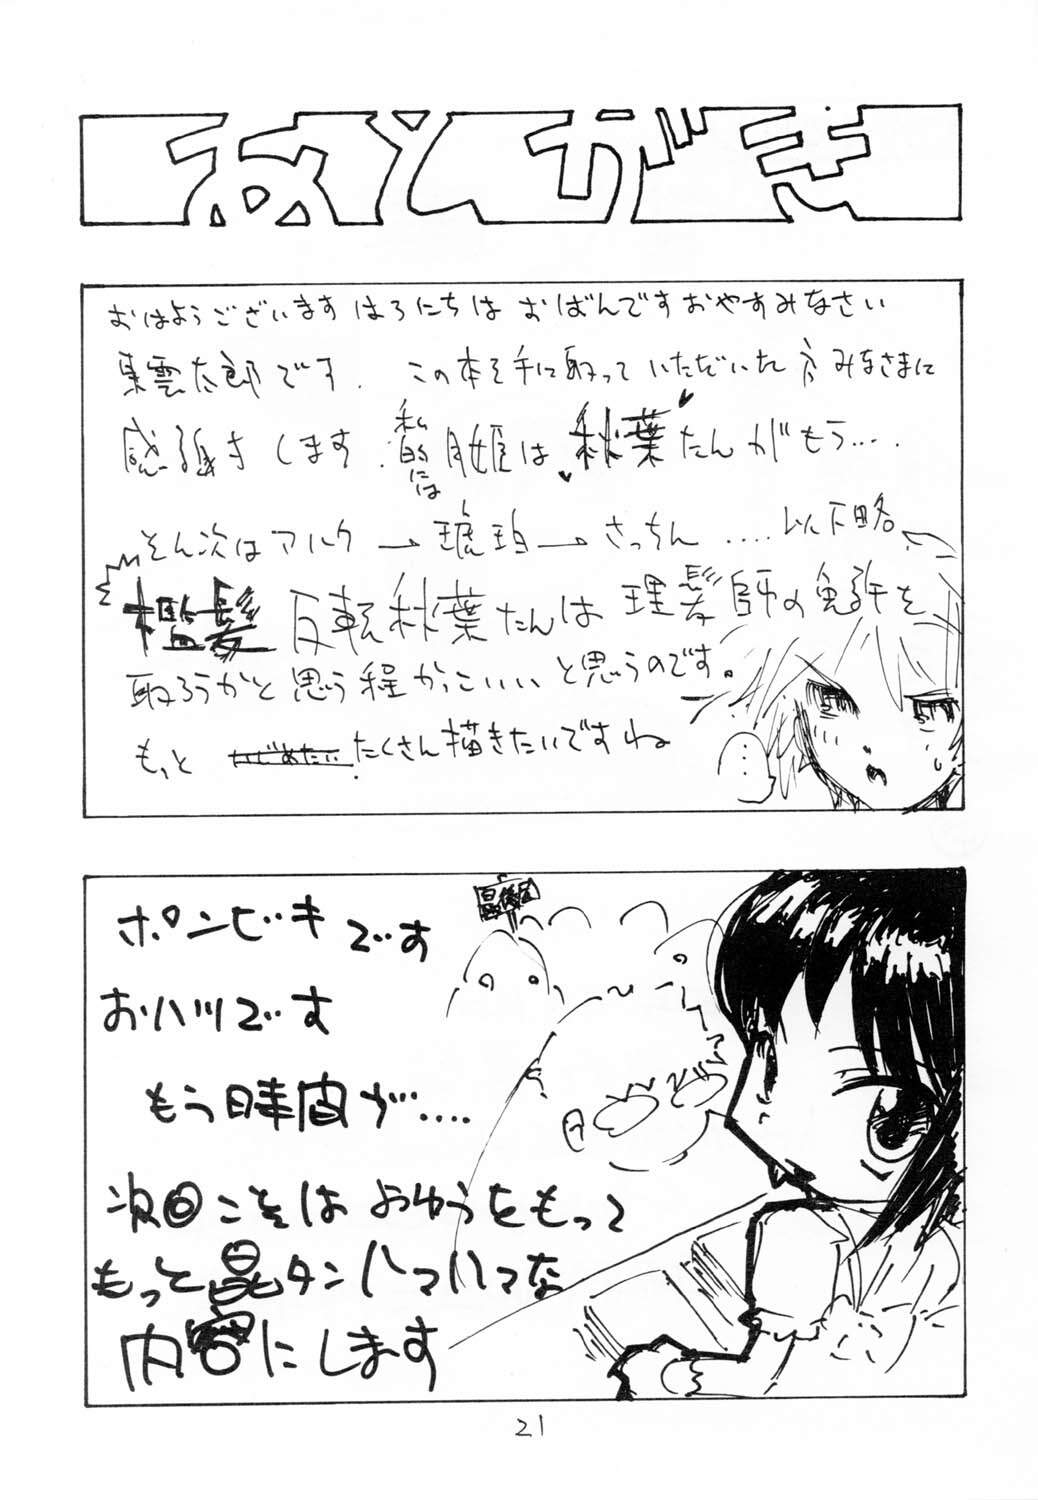 あとがき
おはようございますはろにちは おばんですおやすみなさい
集雲太郎です. この本を手に取っていただいた方みなさまに
感謝します. 私的には月姫は秋葉たんがもう….
そん次はアルク → 琥珀 → さっちん ….以下略
檻髪 反転秋葉たんは 理髪師の免許を
取ろうかと思う程かっこいいと思うのです。
もっと いじめたい たくさん描きたいですね
…
最後尾
ポンビキです
おハツです
もう時間が….
次回こそは よゆうをもって
もっと晶タンハァハァな
内容にします
21